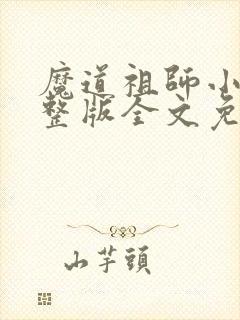 魔道祖師小
整版全文免
山芋頭